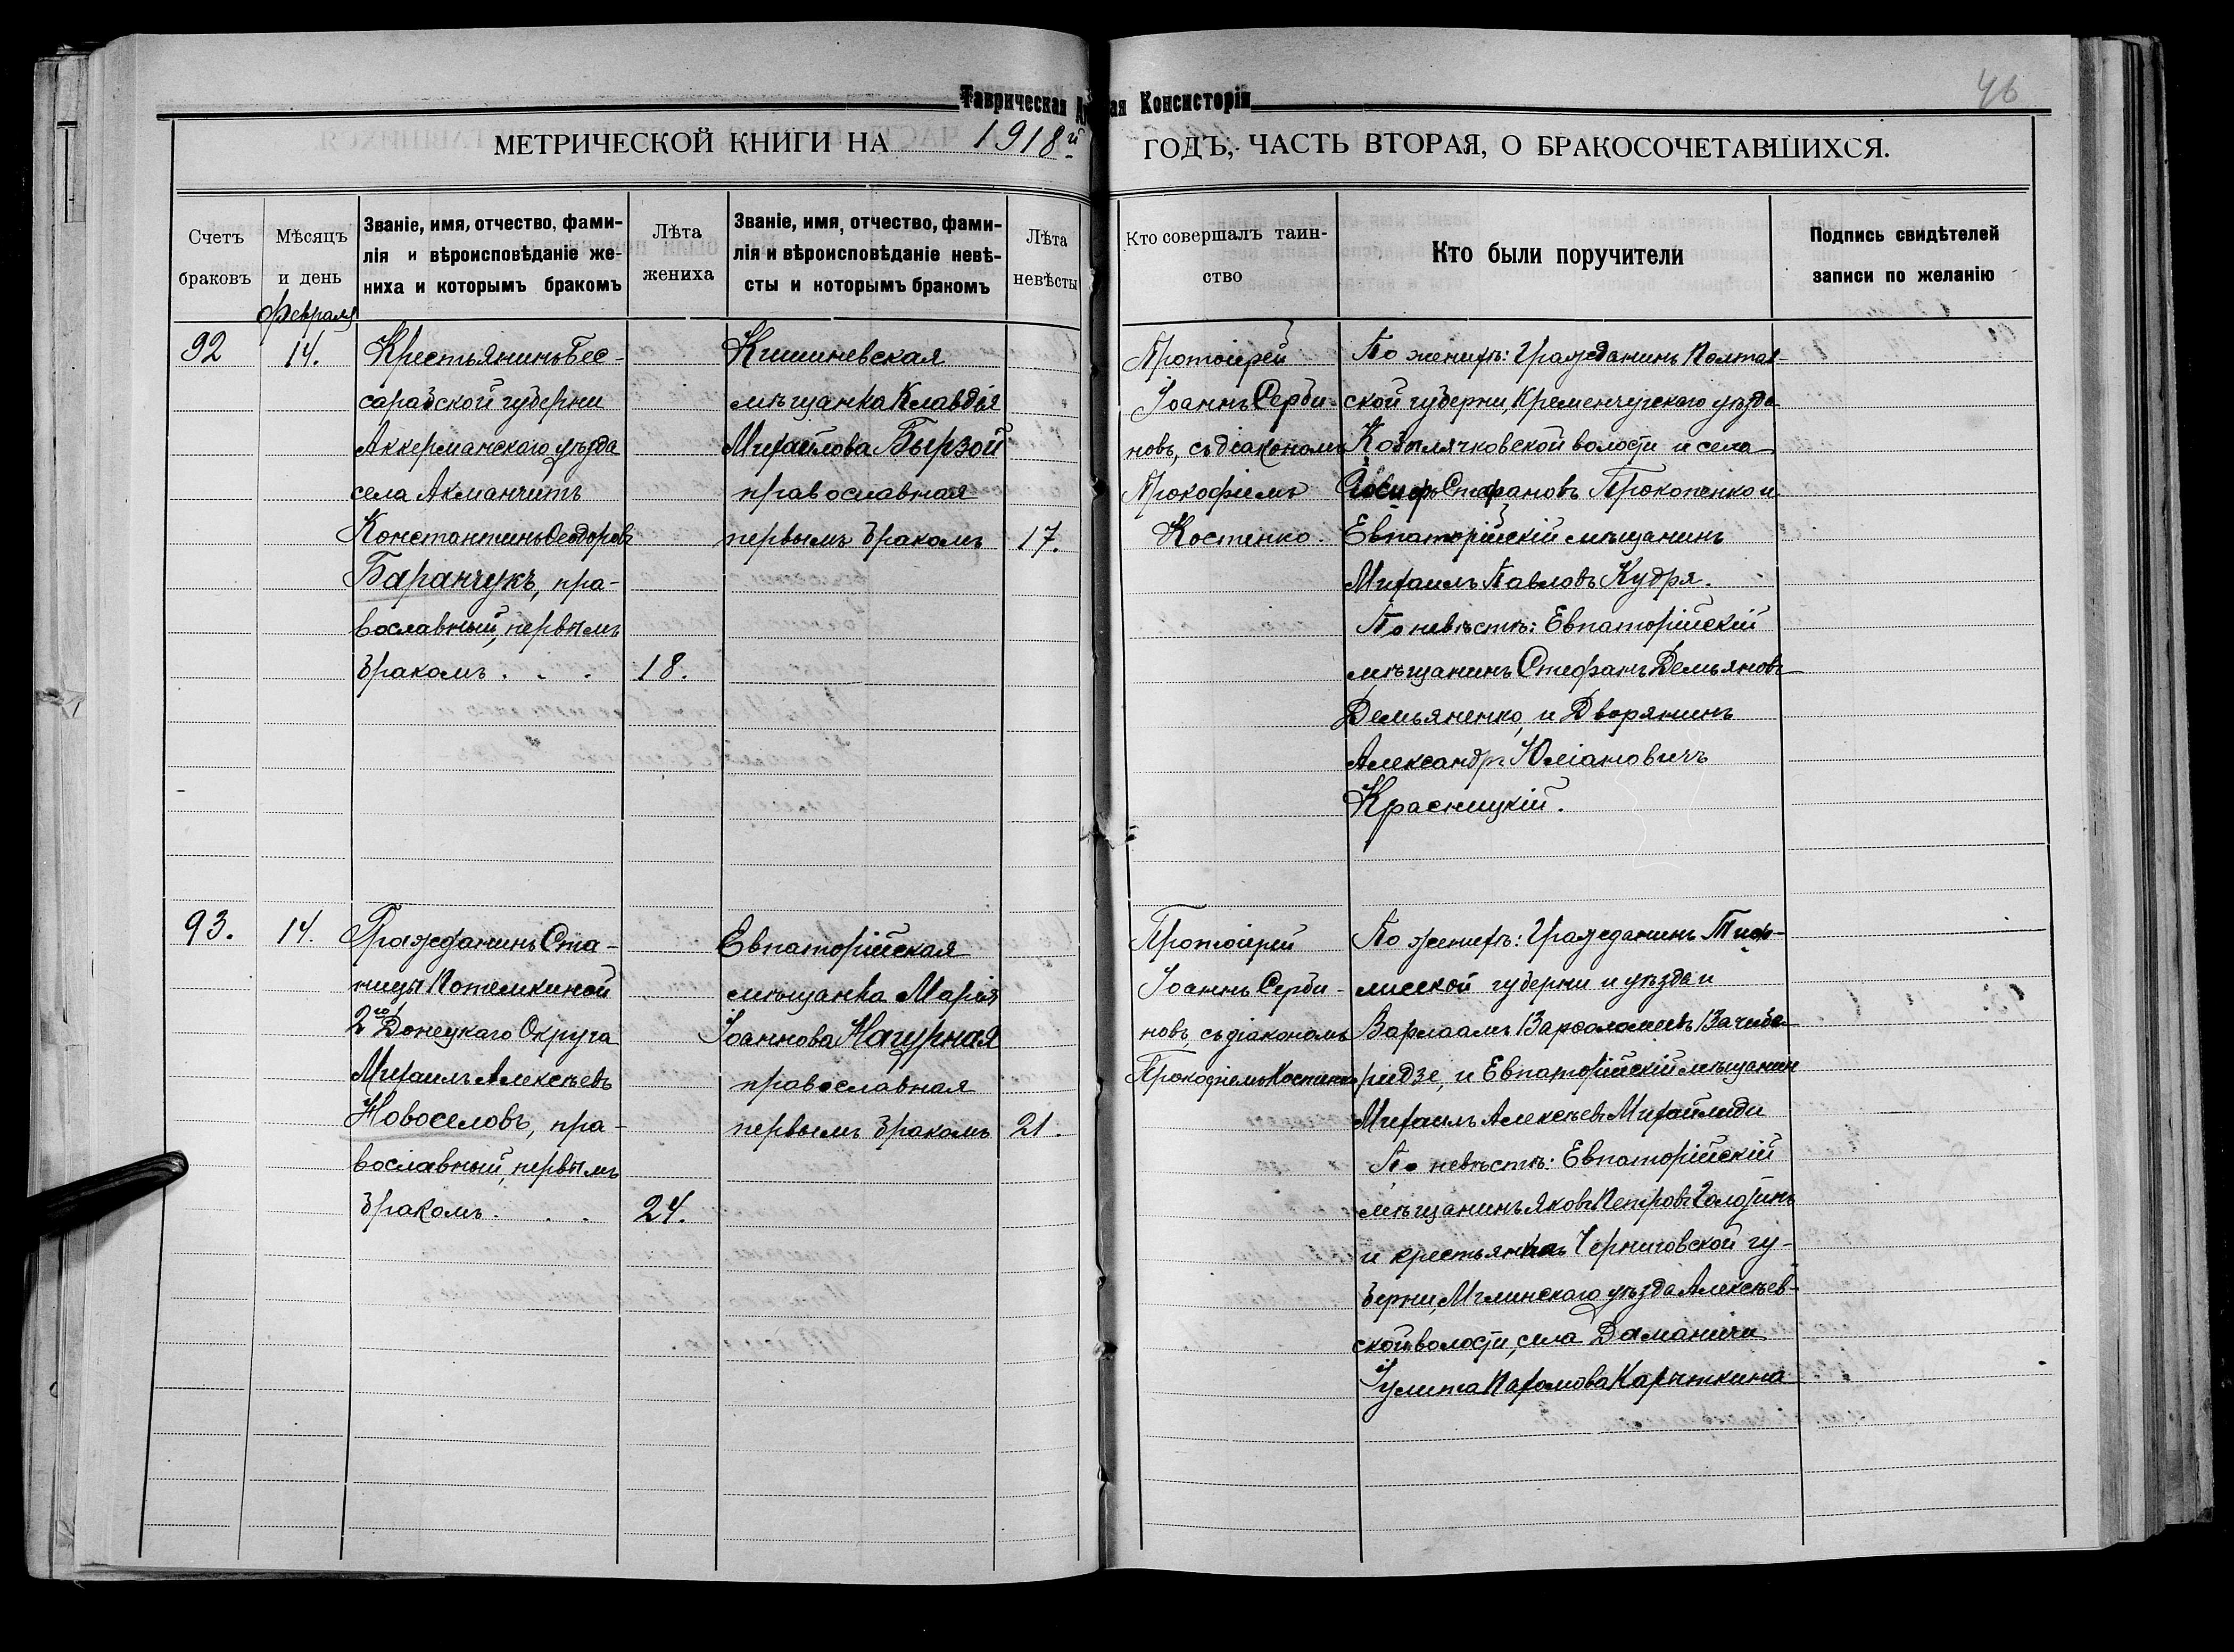 Таврическая
ая Консисторія
46
МЕТРИЧЕСКОЙ КНИГИ НА 1918й
ГОДЪ, ЧАСТЬ ВТОРАЯ, О БРАКОСОЧЕТАВШИХСЯ.
Счетъ браковъ
Мѣсяцъ и день
Званіе, имя, отчество, фами-
лія и вѣроисповѣданіе же-
ниха и которымъ бракомъ
Лѣта жениха
Званіе, имя, отчество, фами-
лія и вѣроисповѣданіе невѣ-
сты и которымъ бракомъ
Лѣта невѣсты
Кто совершалъ таин-
ство
Кто были поручители
Подпись свидѣтелей
записи по желанію
Февраля
92
14.
Крестьянинъ Бес-
сарабской губерни
Аккерманскаго уѣзда
села Акманчитъ
Константинъ Ѳеодоровъ
Баранчукъ, пра-
вославный, первымъ
бракомъ . . .
18.
Кишиневская
мѣщанка Клавдія
Михайлова Бырзой
православная
первымъ бракомъ
17.
Протоіерей
Іоаннъ Серби-
новъ, съ діакономъ
Прокофіемъ
Костенко.
По женихѣ: Гражданинъ Полтав-
ской губерни, Кременчугскаго уѣзда
Кобылячковской волости и села
Іосифъ Стефановъ Прокопенко и
Евпаторійскій мѣщанинъ
Михаилъ Павловъ Кудря.
По невѣстѣ: Евпаторійскій
мѣщанинъ Стефанъ Демьяновъ
Демьяненко, и Дворянинъ
Александръ Юліановичъ
Красницкій.
93.
14.
Гражданинъ Ста-
ницы Потемкиной
2го Донецкаго Округа
Михаилъ Алексѣевъ
Новоселовъ, пра-
вославный, первымъ
бракомъ . . .
24.
Евпаторійская
мѣщанка Марія
Іоаннова Нагурная
православная
первымъ бракомъ
21.
Протоіерей
Іоаннъ Серби-
новъ, съ діакономъ
Прокофіемъ Костенко
По женихѣ: Гражданинъ Тиф-
лисской губерни и уѣзда и
Варлаамъ Варѳоломеевъ
ридзе, и Евпаторійскій мѣщанинъ
Михаилъ Алексѣевъ Михайлиди
По невѣстѣ: Евпаторійскій
мѣщанинъ Яковъ Петровъ
и крестьянка Черниговской гу-
берни, Мглинскаго уѣзда Алексѣев-
ской волости, села Даманичи
Іулита Пахомова